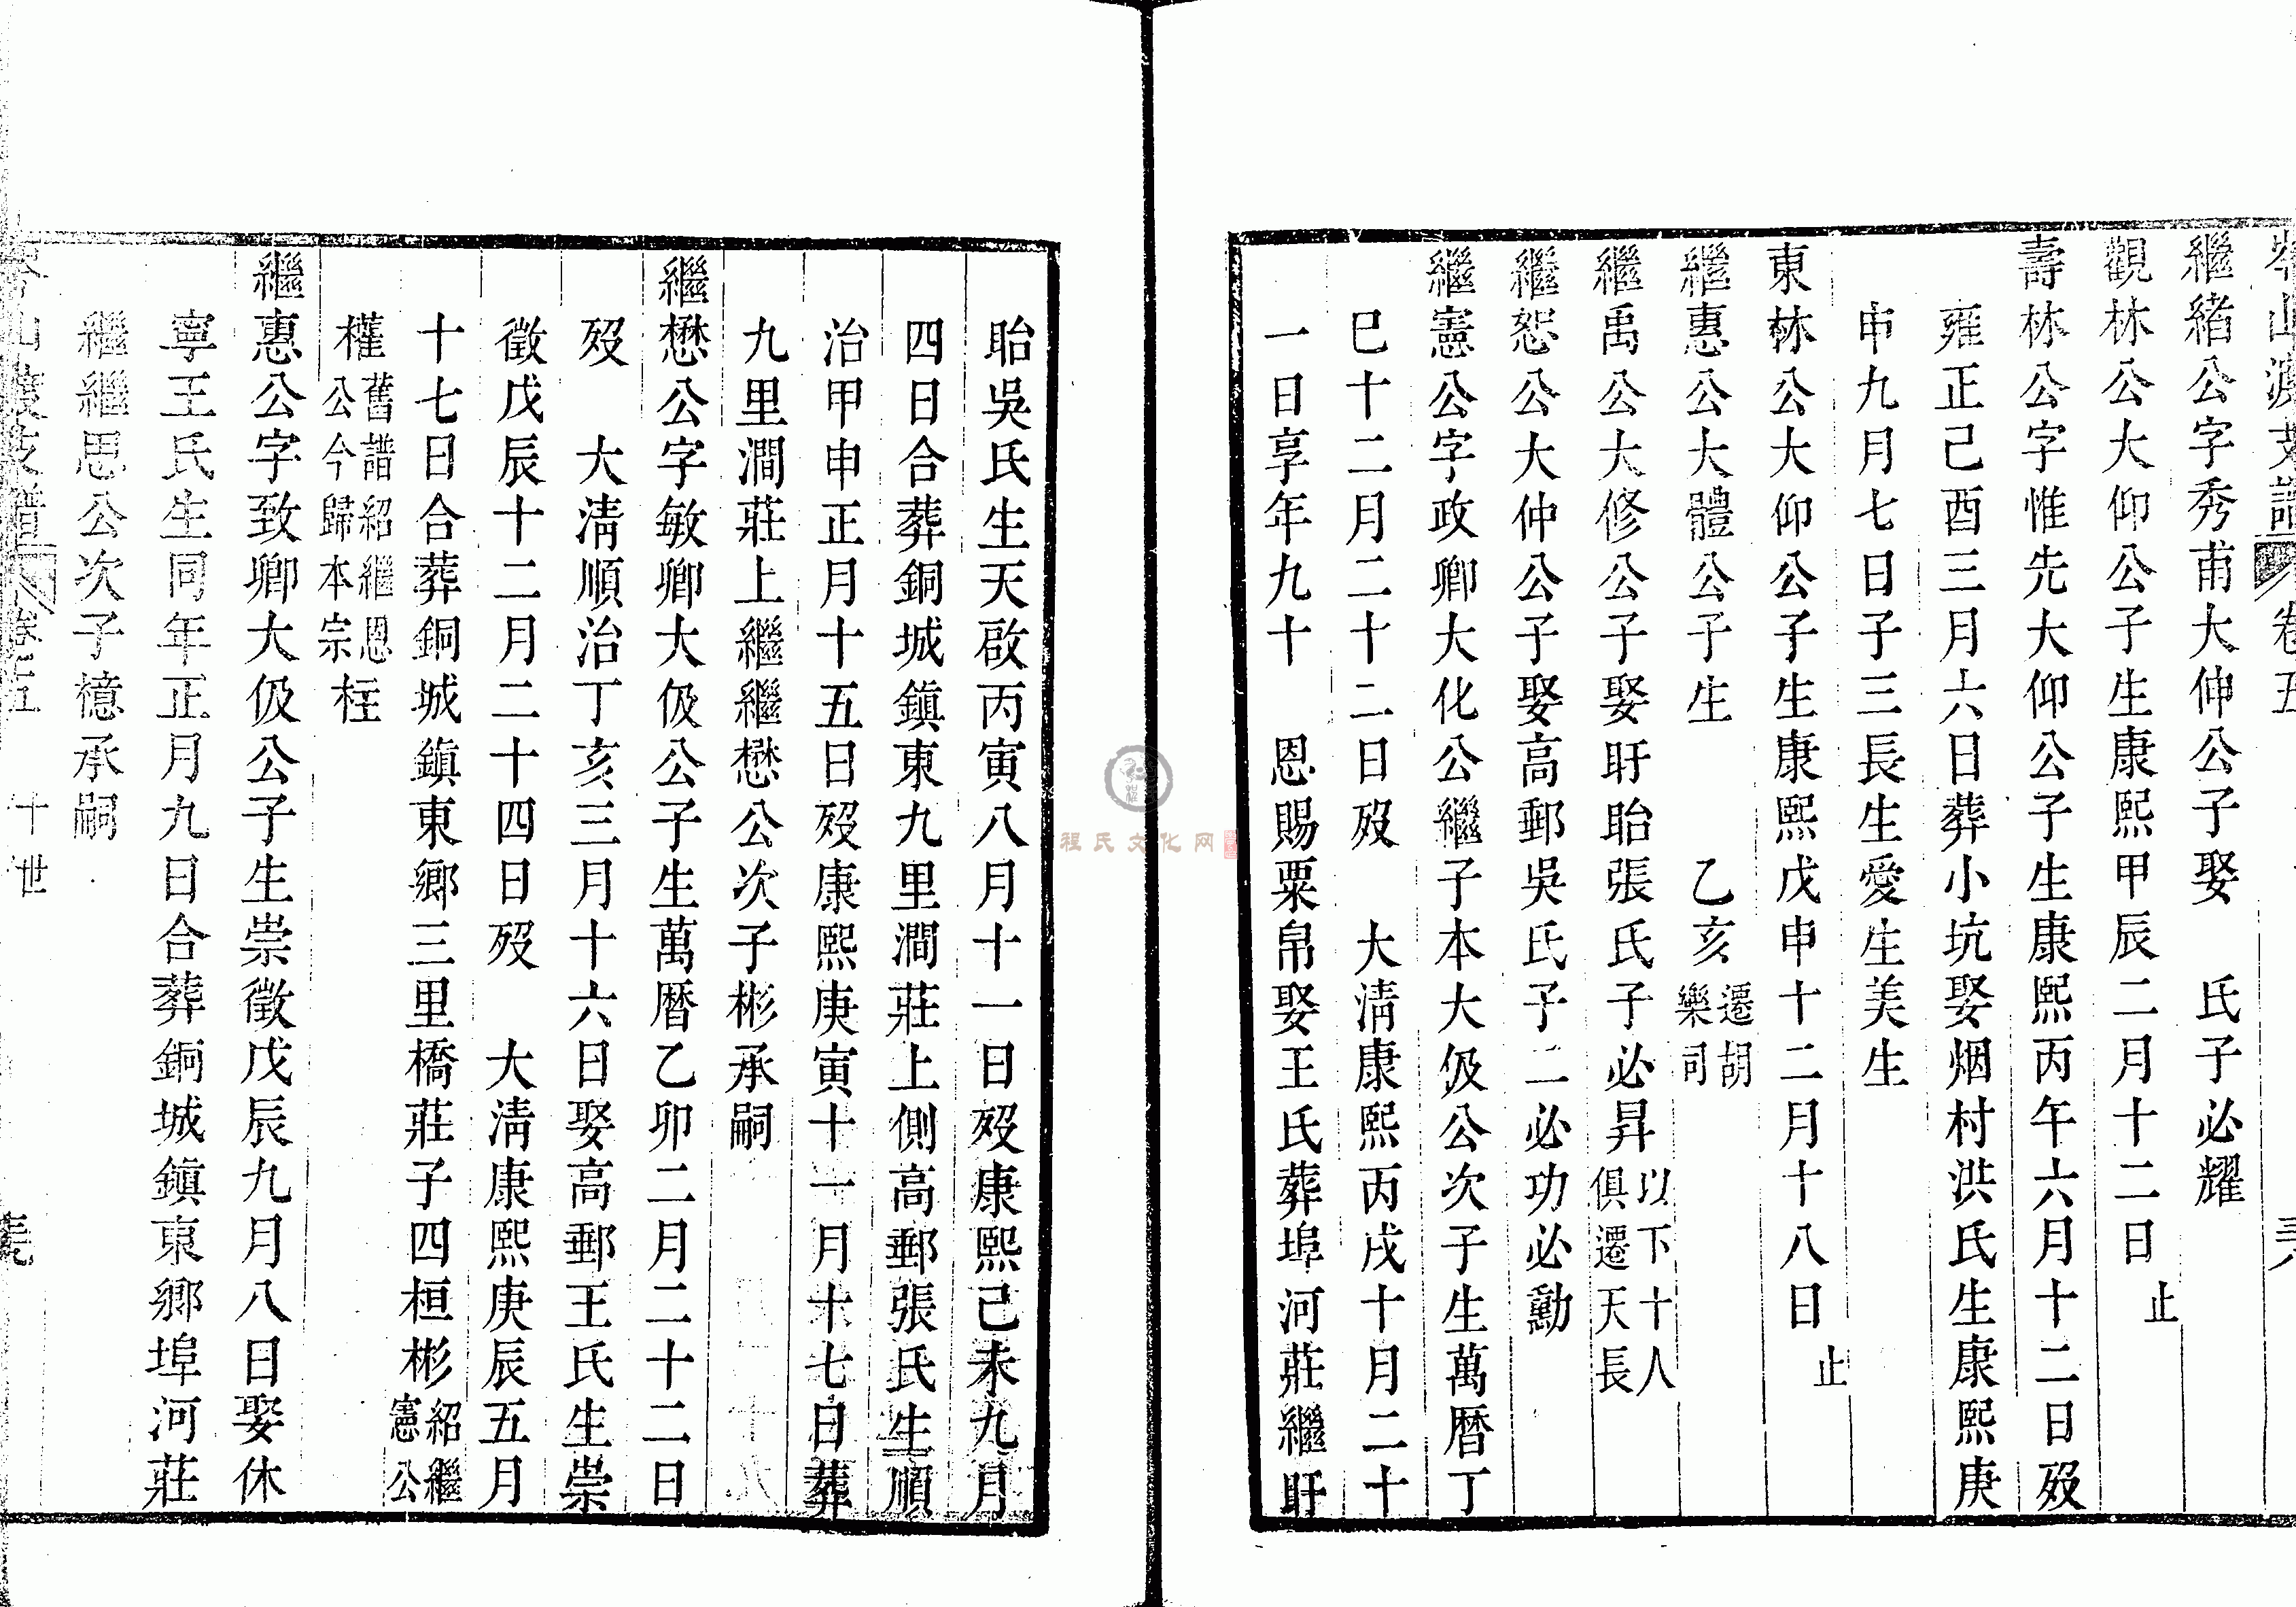 岑山渡支譜 卷五
繼緒公字秀甫大伸公子娶 氏子必耀
觀林公大仰公子生康熙甲辰二月十二日 止
壽林公字惟先大仰公子生康熙丙午六月十二日歿
雍正己酉三月六日葬小坑娶烟村洪氏生康熙庚
申九月七日子三長生愛生美生
東林公大仰公子生康熙戊申十二月十八日 止
繼惠公大體公子生 乙亥遷胡樂司
繼禹公大修公子娶盱眙張氏子必昇以下十人俱遷天長
繼恕公大仲公子娶高郵吳氏子二必功必勳
繼憲公字政卿大化公繼子本大伋公次子生萬曆丁
巳十二月二十二日歿 大清康熙丙戌十月二十
一日享年九十 恩賜粟帛娶王氏葬埠河莊繼盱
眙吳氏生天啟丙寅八月十一日歿康熙己未九月
四日合葬銅城鎮東九里澗莊上側高郵張氏生順
治甲申正月十五日歿康熙庚寅十一月十七日葬
九里澗莊上繼繼懋公次子彬承嗣
繼懋公字敏卿大伋公子生萬曆乙卯二月二十二日
歿 大清順治丁亥三月十六日娶高郵王氏生崇
徵戊辰十二月二十四日歿 大清康熙庚辰五月
十七日合葬銅城鎮東鄉三里橋莊子四桓彬紹繼憲公
權舊譜紹繼恩公今歸本宗桂
繼惠公字致卿大伋公子生崇徵戊辰九月八日娶休
寧王氏生同年正月九日合葬銅城鎮東鄉埠河莊
繼繼思公次子憶承嗣
岑山渡支譜 卷五 十世